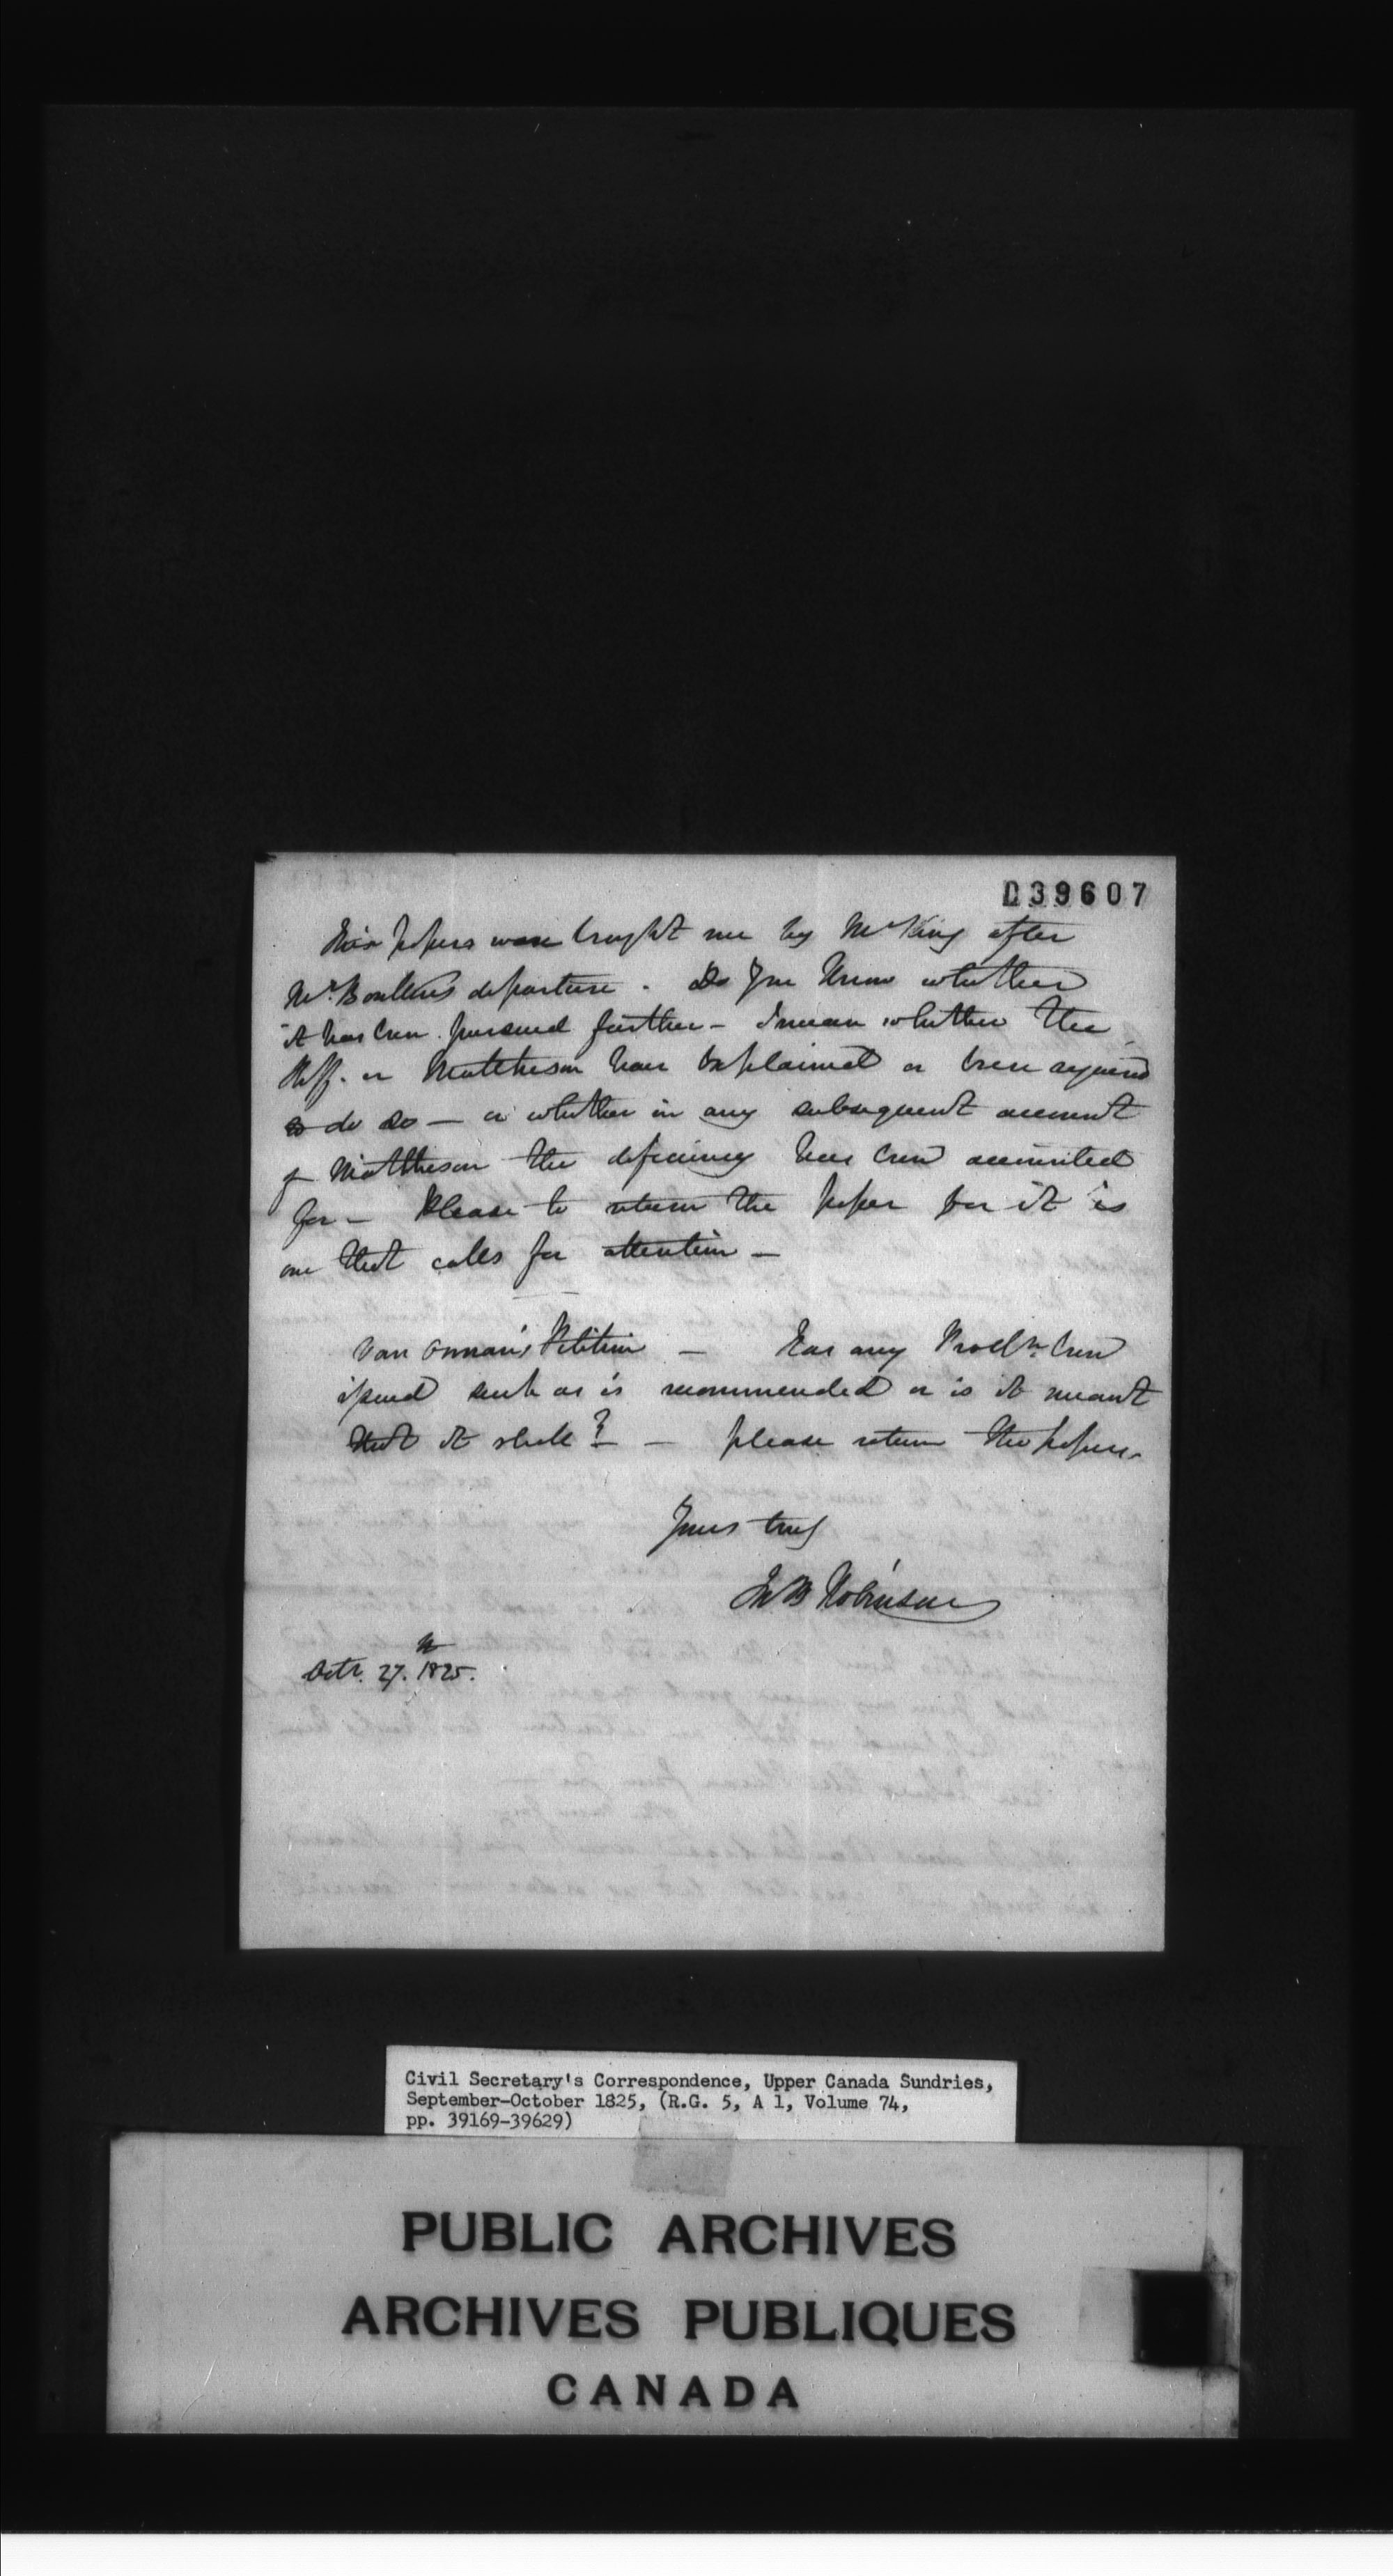 039607
papers were brought me by Mr King after
Mr. Boulton's departure. Do you know whether
it has been pursued further - I mean whether the
Shff. or Matthewson have explained or been required
to do so — or whether in any subsequent account
of Matthewson the deficiency has been accounted
for — Please to return the paper for it is
one that calls for attention —
Van Orman's Petition — Has any Procln. been
issued such as is recommended or is it meant
that it shall? — please return the papers.
Yours truly
Jn B Robinson
Octr. 27. 1825.
Civil Secretary's Correspondence, Upper Canada Sundries,
September-October 1825, (R.G. 5, A 1, Volume 74,
pp. 39169-39629)
PUBLIC ARCHIVES
ARCHIVES PUBLIQUES
CANADA